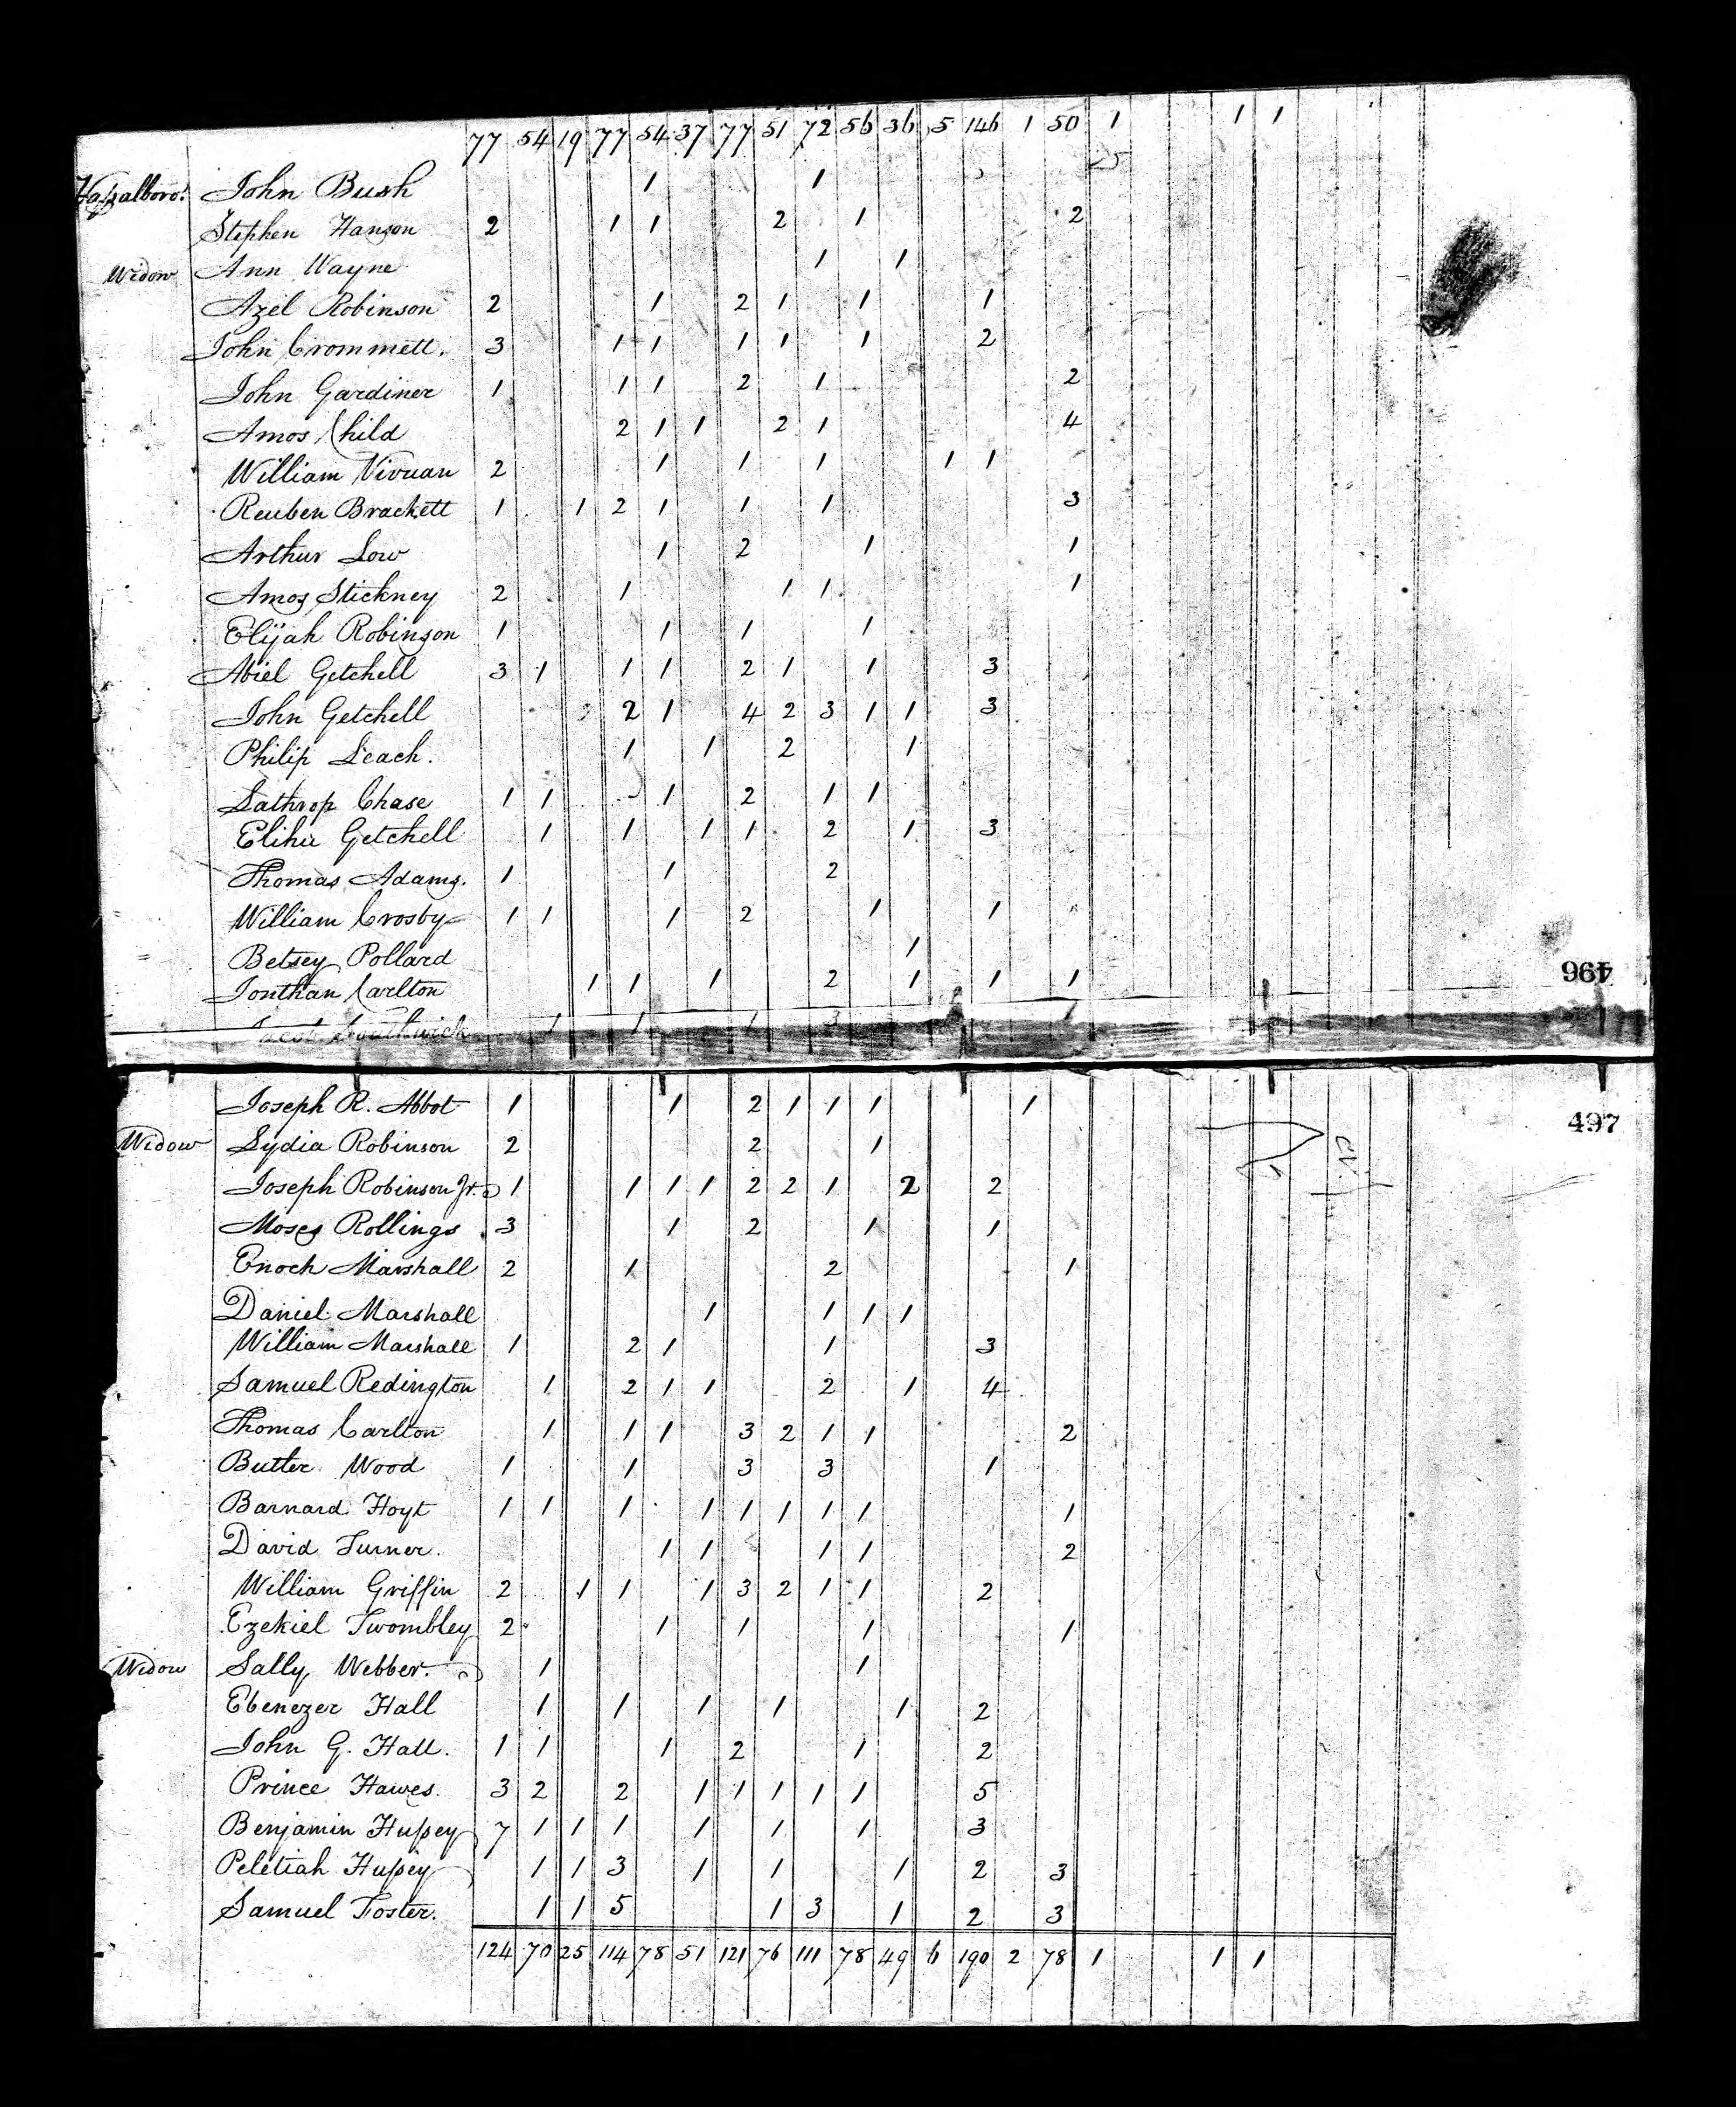 77 54 19 77 54 37 77 51 72 56 36 5 146 1 50 1 1 1
25
Vassalboro' John Bush 1 1
Stephen Hanson 2 1 1 2 1 2
Widow Ann Wayne 1 1
Azel Robinson 2 1 2 1 1 1
John Crommett. 3 1 1 1 1 1 2
John Gardiner 1 1 1 2 1 2
Amos Child 2 1 1 2 1 4
William 2 1 1 1 1 1
Reuben Brackett 1 1 2 1 1 1 3
Arthur Low 1 2 1 1
Amos Stickney 2 1 1 1 1
Elijah Robinson 1 1 1 1
Abiel Getchell 3 1 1 1 2 1 1 3
John Getchell 2 1 4 2 3 1 1 3
Philip Leach. 1 1 2 1
Lathrop Chase 1 1 1 2 1 1
Elihu Getchell 1 1 1 1 2 1 3
Thomas Adams. 1 1 2
William Crosby 1 1 1 2 1 1
Betsey Pollard 1
Jonthan Carlton 1 1 1 2 1 1 1
496
Southwick 1 1 1 3
Joseph R. Abbot 1 1 2 1 1 1 1
497
Widow Lydia Robinson 2 2 1
Joseph Robinson Jr. 1 1 1 1 2 2 1 2 2
Moses Rollings 3 1 2 1 1
Enoch Marshall 2 1 2 1
Daniel Marshall 1 1 1 1
William Marshall 1 2 1 1 3
Samuel Redington 1 2 1 1 2 1 4
Thomas Carlton 1 1 1 3 2 1 1 2
Butler Wood 1 1 3 3 1
Barnard Hoyt 1 1 1 1 1 1 1 1 1
David Turner. 1 1 1 1 2
William Griffin 2 1 1 1 3 2 1 1 2
Ezekiel Twombley 2 1 1 1 1
Widow Sally Webber. 1 1
Ebenezer Hall 1 1 1 1 1 2
John G. Hall. 1 1 1 2 1 2
Prince Hawes. 3 2 2 1 1 1 1 1 5
Benjamin Hussey 7 1 1 1 1 1 1 3
Peletiah Hussey 1 1 3 1 1 1 2 3
Samuel Foster. 1 1 5 1 3 1 2 3
124 70 25 114 78 51 121 76 111 78 49 6 190 2 78 1 1 1